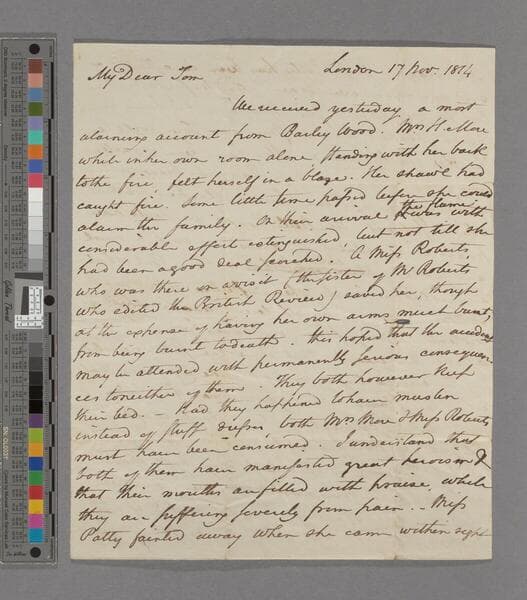 London 17 Nov. 1814
My Dear Tom
We received yesterday a most
alarming account from Barley Wood. Mrs H. More
while in her own room alone standing with her back
to the fire, felt herself in a blaze. Her shawl had
caught fire. Some little time passed before she could
alarm the family. On their arrival the flame was with
considerable effort extinguished, but not till she
had been a good deal scorched. A Miss Roberts,
who was there on a visit (the sister of Mr Roberts
who edited the British Review) saved her, though
at the expense of having her own arms much burnt,
from being burnt to death. tis hoped that the accident
may be attended with permanently serious consequen-
ces to neither of them. They both however keep
their bed. - Had they happened to have muslin
instead of stuff dresses, both Mrs More & Miss Roberts
must have been consumed. I understand that
both of them have manifested great heroism &
that their mouths are filled with praise, while
they are suffering severely from pain. . Miss
Patty fainted away when she came within sight